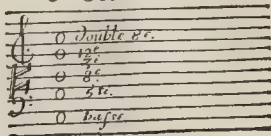 Double 8e.
12e
7e
8e
5te.
basse